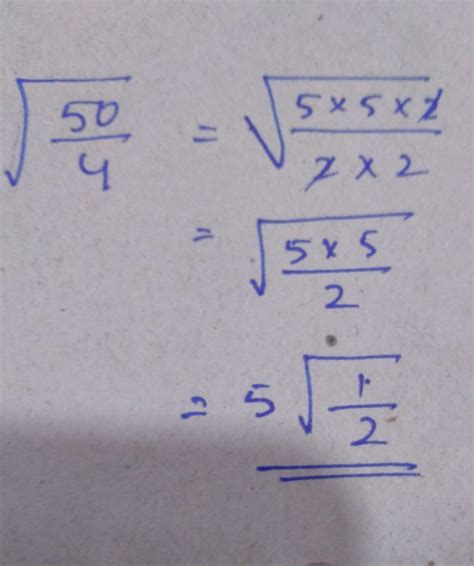 √(50/4) = √(5×5×2/2×2)
= √(5×5/2)
= 5√(1/2)